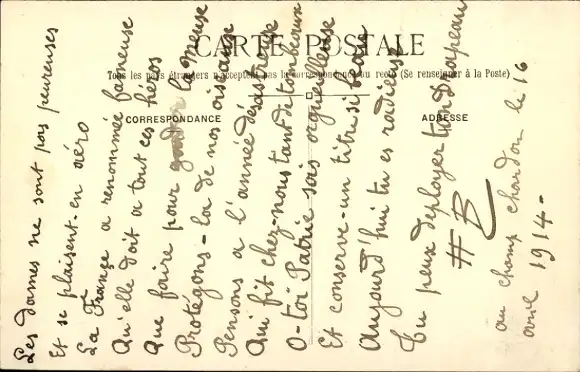 CARTE POSTALE
Tous les pays étrangers n'acceptent pas la correspondance au recto (Se renseigner à la Poste)
CORRESPONDANCE
ADRESSE
Les dames ne sont pas peureuses
Et se plaisent en aéro
La France a renommée fameuse
Qu'elle doit a tout ces héros
Que faire pour la Meuse
Protégons-la de nos oiseaux
Pensons a l'année désastreuse
Qui fit chez-nous tant de tombeaux
O-toi Patrie sois orgueilleuse
Et conserve-un titre si beau
Aujourd'hui tu es radieuse
Tu peux deployer ton Drapeau
HB
au champ chardon le 16
avril 1914-